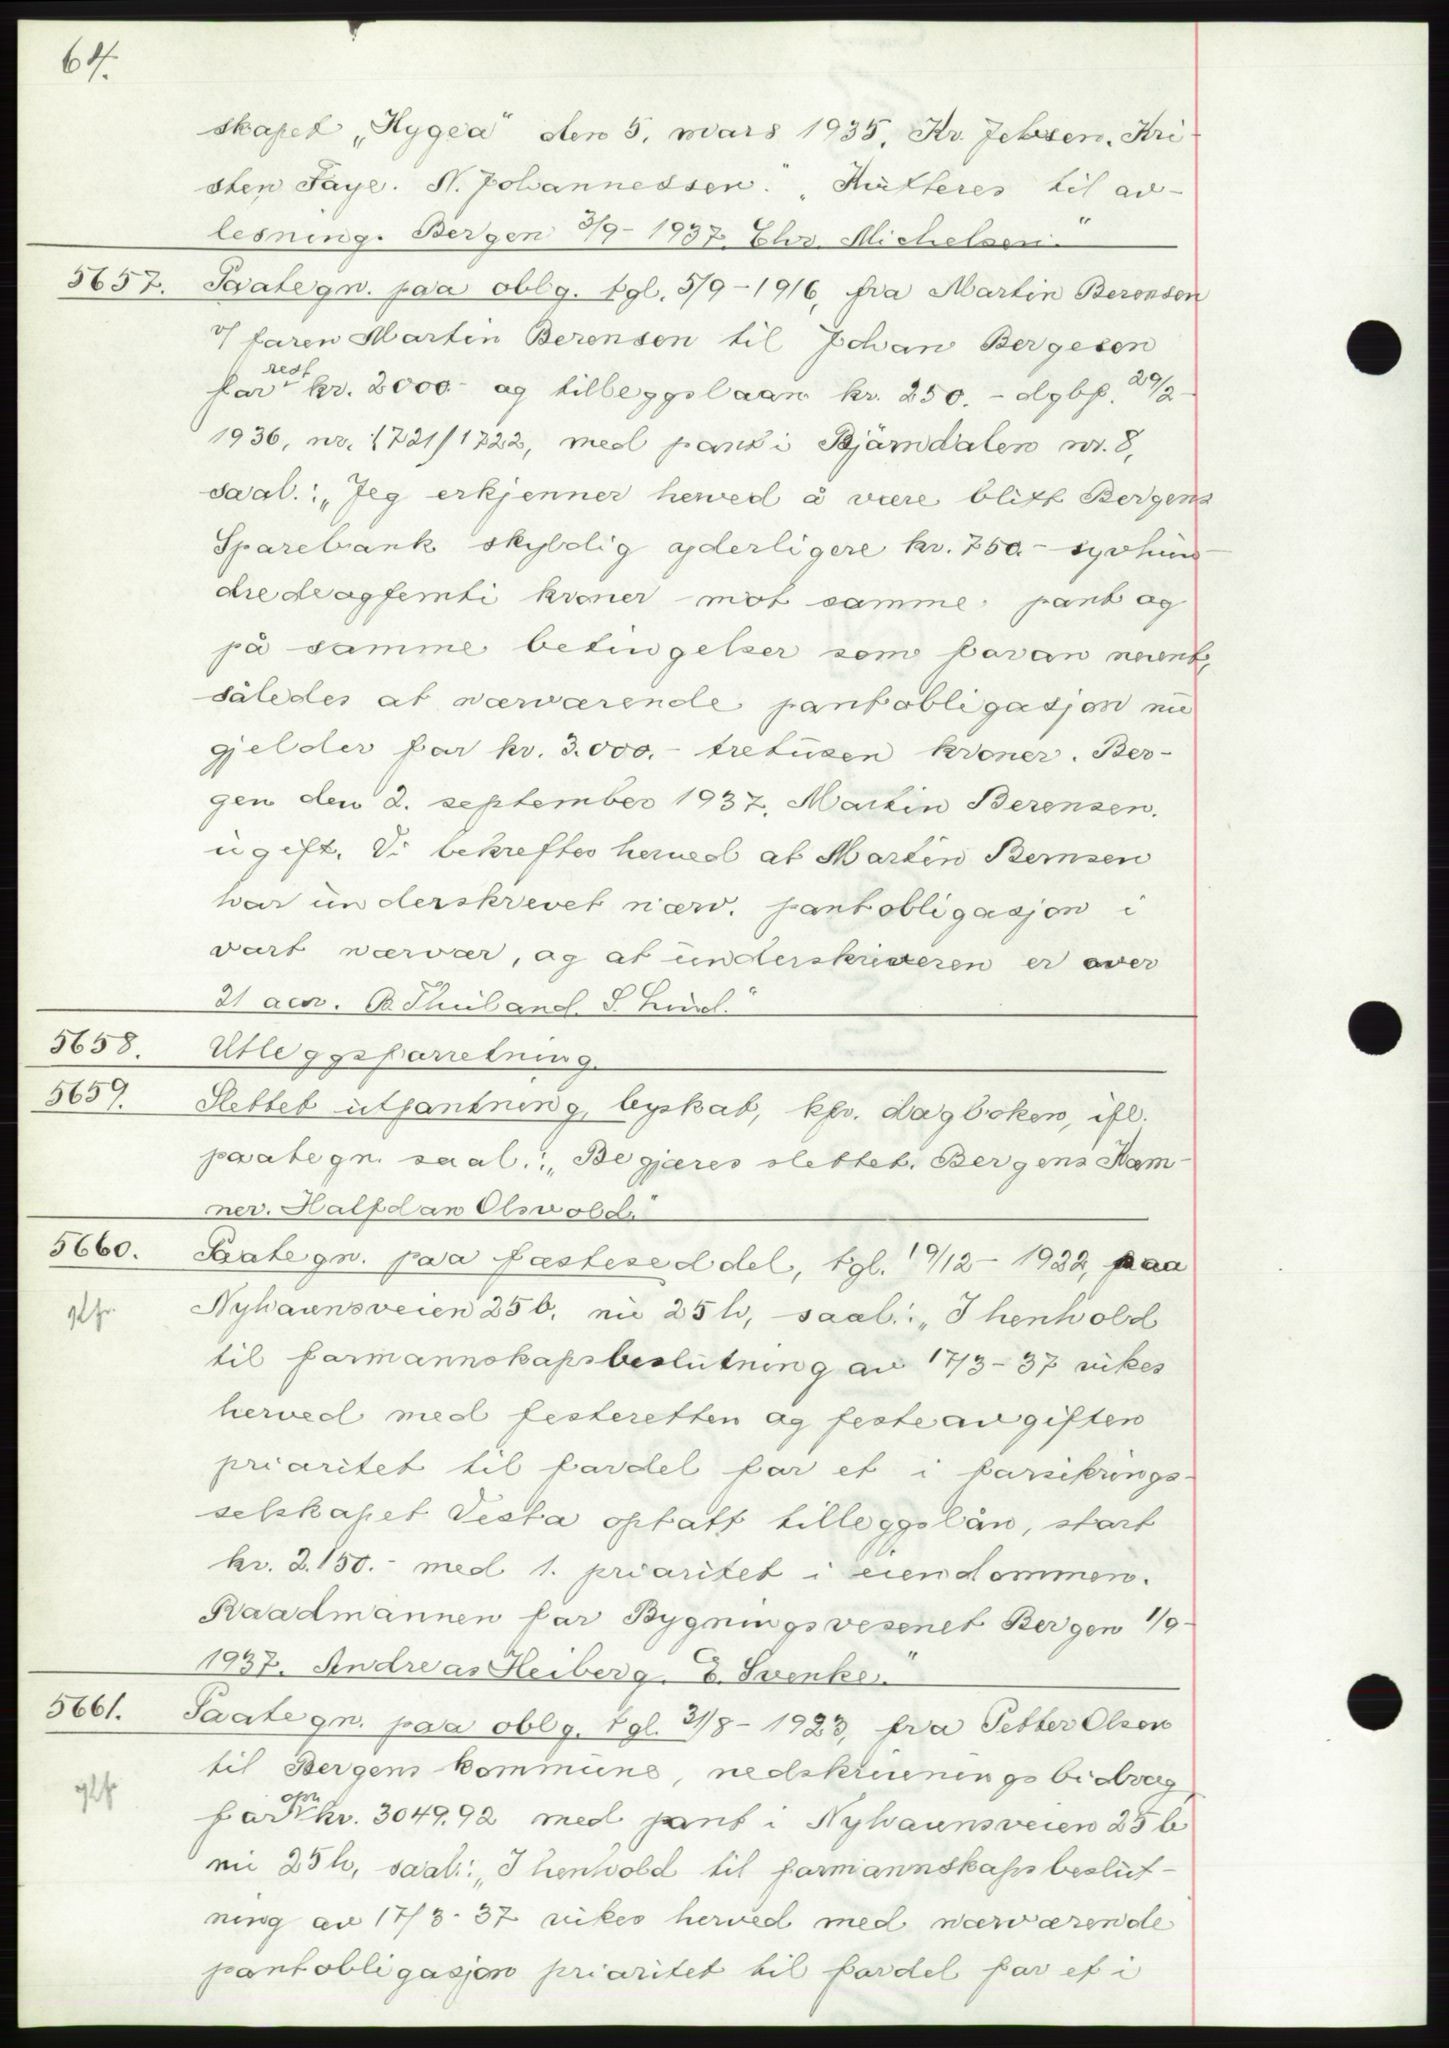 64.
skapet „Hygea" den 5. mars 1935. Kr. Jebsen. Kri-
sten Faye. N. Johannessen." „Kvitteres til av-
lesning. Bergen 3/9-1937. Chr. Michelsen."
5657. Paategn. paa oblg. tgl. 5/9-1916, fra Martin Berensen
v/ faren Martin Berensen til Johan Bergesen
for rest kr. 2000.- og tilleggslaan kr. 250.- dgbf. 29/2-
1936, nr. 1721/1722, med pant i Bjørndalen nr. 8,
saal.: „Jeg erkjenner herved å være blitt Bergens
Sparebank skyldig yderligere kr. 750.- syvhun-
dredeogfemti kroner mot samme pant og
på samme betingelser som foran nevnt,
således at nærværende pantobligasjon nu
gjelder for kr. 3.000.- tretusen kroner. Ber-
gen den 2. september 1937. Martin Berensen.
ugift. Vi bekrefter herved at Martin Bernsen
har underskrevet nærv. pantobligasjon i
vårt nærvær, og at underskriveren er over
21 aar. B. Thuland. S. Lund."
5658. Utleggsforretning.
5659. Slettet utpantning, byskat, kfr. dagboken, ifl.
paategn. saal.: „Begjæres slettet. Bergens Kem-
ner. Halfdan Olsvold."
5660. Paategn. paa festeseddel, tgl. 19/12-1922, paa
Nyhavnsveien 25b, nu 25h, saal.: „I henhold
til formannskapsbeslutning av 17/3-37 vikes
herved med festeretten og festeavgiften
prioritet til fordel for et i forsikrings-
selskapet Vesta optatt tilleggslån, stort
kr. 2.150.- med 1. prioritet i eiendommen.
Raadmannen for Bygningsvesenet Bergen 1/9-
1937. Andreas Heiberg. E. Svenke."
5661. Paategn. paa oblg. tgl. 31/8-1923, fra Petter Olsen
til Bergens kommune, nedskrivningsbidrag,
for opr kr. 3049.92 med pant i Nyhavnsveien 25b
nu 25h, saal.: „I henhold til formannskapsbeslut-
ning av 17/3-37 vikes herved med nærværende
pantobligasjon prioritet til fordel for et i